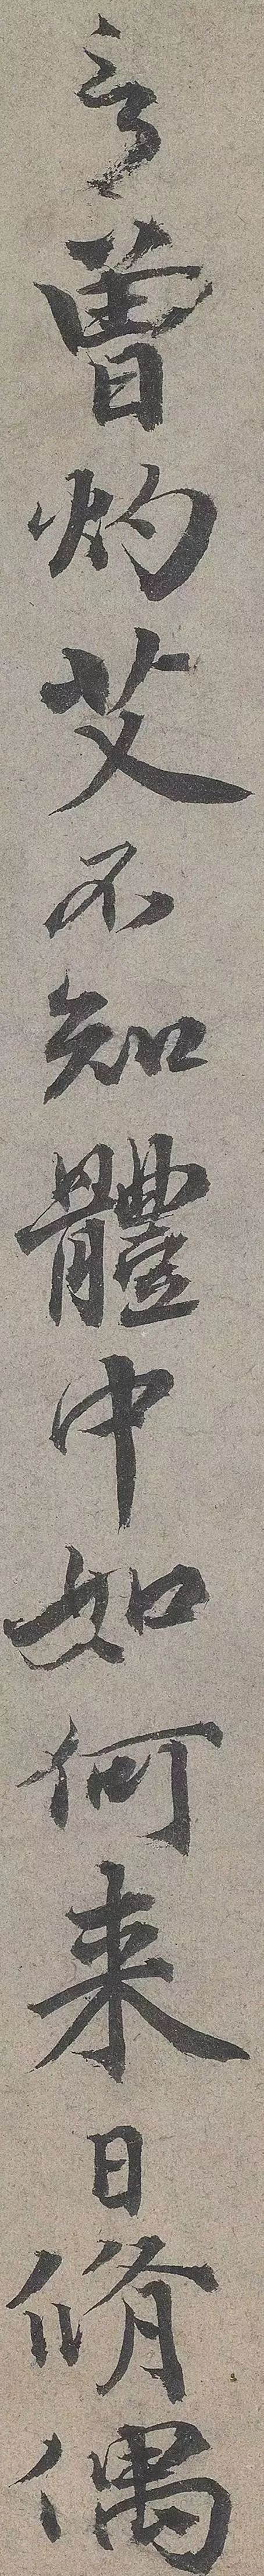 言曾灼艾不知體中如何来日脩偶